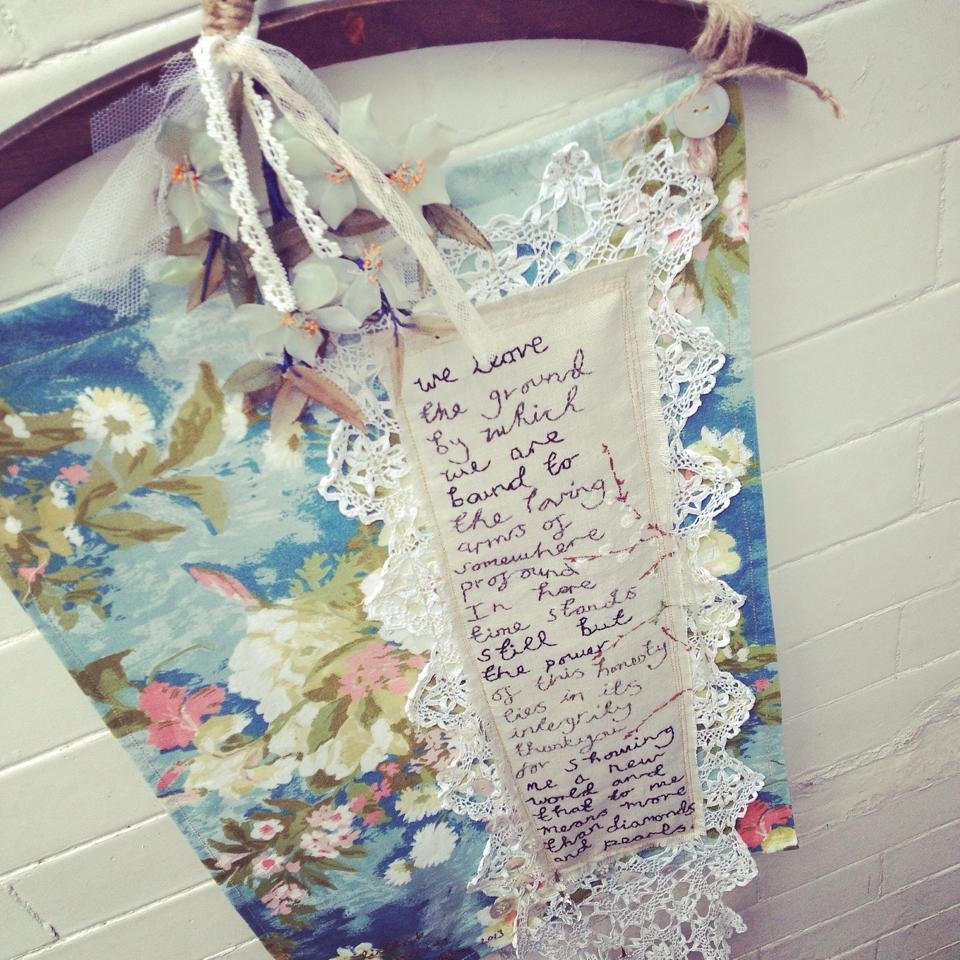 we leave
the ground
by which
we are
bound to
the loving
arms of
somewhere
profound
In here
time stands
still but
the power
of this honesty
lies in its
integrity
thankyou
for showing
me a new
world and
that to me
means more
than diamonds
and pearls
2013